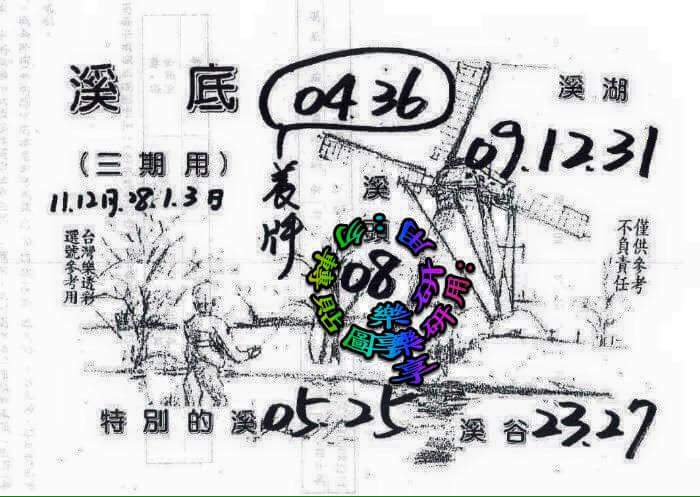 溪底
04.36
溪湖
(三期用)
09.12.31
11.12月.28.1.3日
養牌
溪頭
08
台灣樂透彩
選號參考用
僅供參考
不負責任
特別的溪
05.25
溪谷
23.27